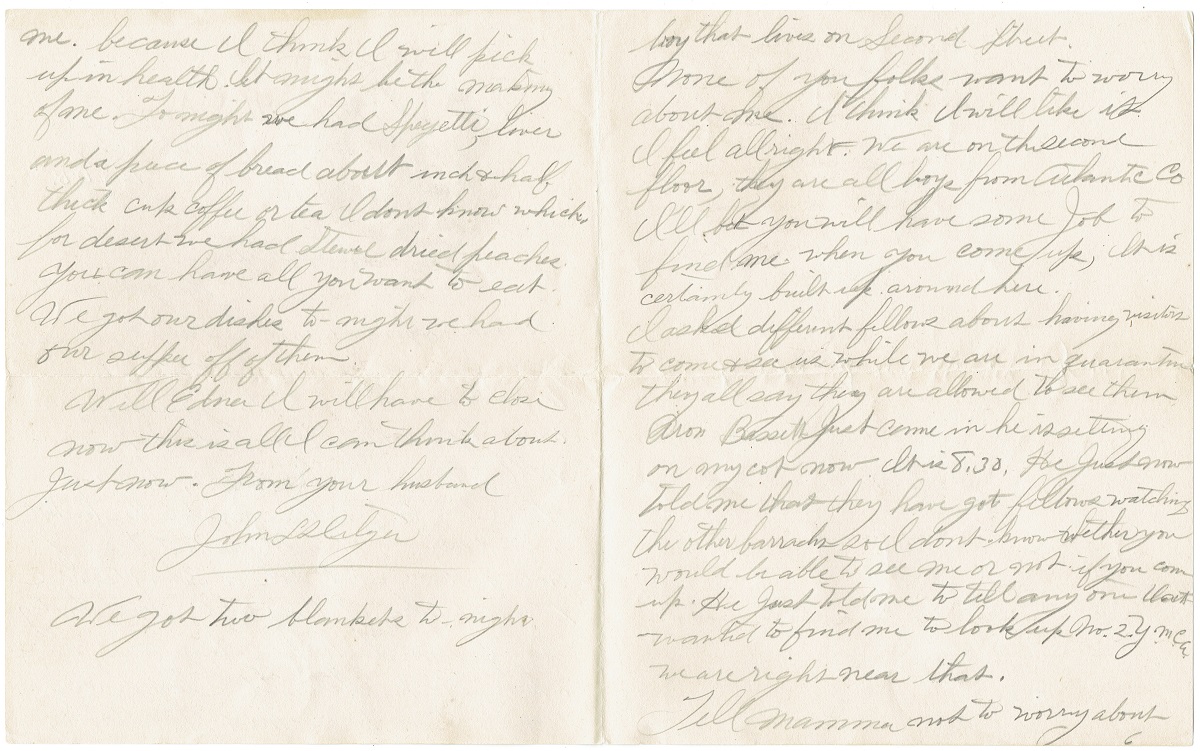 me. because I think I will pick
up in health. It might be the making
of me. To-night we had Spegetti, liver
and a piece of bread about inch & half
thick cup coffee or tea I dont know which,
for desert we had stewed dried peaches.
You can have all you want to eat.
We got our dishes to-night we had
our supper off of them.
Well Edna I will have to close
now this is all I can think about
Just now. From your husband
John
We got two blankets to-night
boy that lives on Second Street.
None of you folks want to worry
about me. I think I will like it
I feel allright. We are on the second
floor, they are all boys from Atlantic Co
I'll bet you will have some Job to
find me when you come up, It is
certainly built up around here.
I asked different fellows about having visitors
to come & see us while we are in quarantine
they all say they are allowed to see them
Aron Bassett Just came in he is setting
on my cot now It is 8.30. He Just now
told me that they have got fellows watching
the other barracks so I dont know whether you
would be able to see me or not if you come
up. He Just told me to tell any one that
wanted to find me to look up No. 2. Y.M.C.A.
we are right near that.
Tell Mamma not to worry about
6